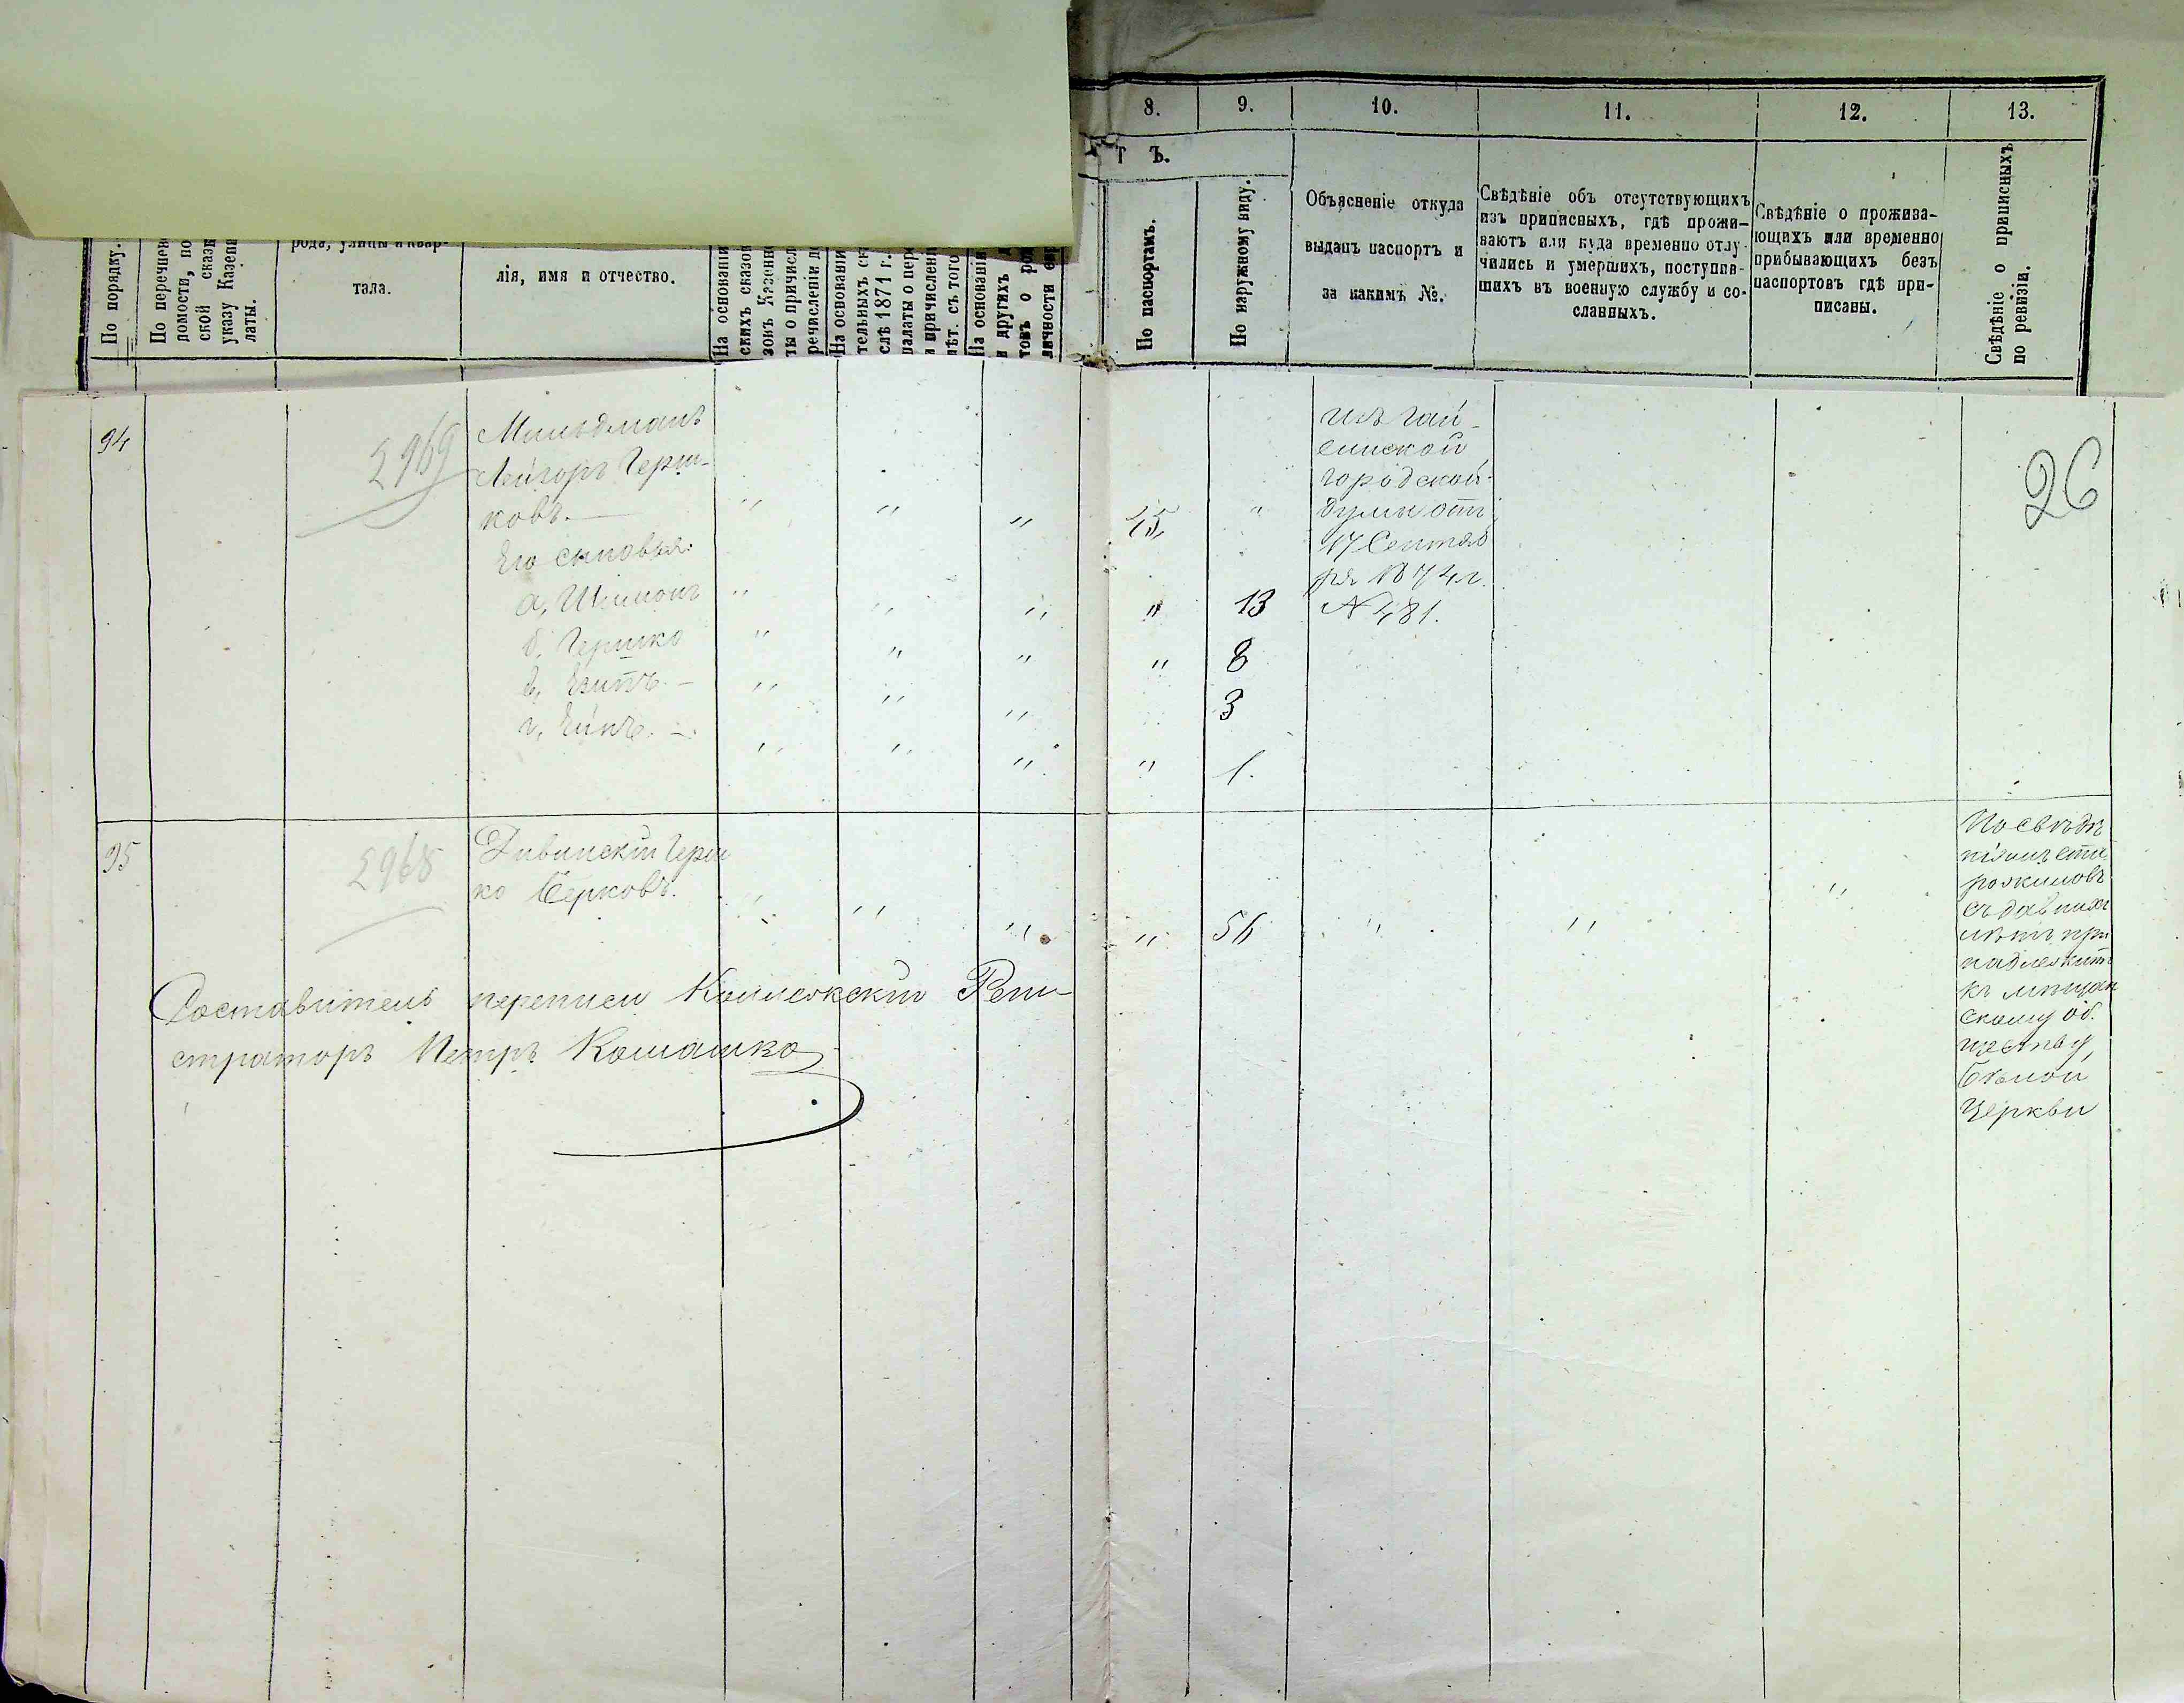 8.
9.
10.
11.
12.
13.
Т Ъ.
По порядку.
По перечнев
домости, по
ской сказк
указу Казенн
латы.
рода, улицы и квар-
тала.
лія, имя и отчество.
На основаніи
скихъ сказок
зокъ Казенн
ты о причисл
речисленіи д
На основаніи
тельныхъ ск
слѣ 1871 г.
палаты о пере
и причислені
лѣт. съ того
На основаніи
и другихъ
товъ о ро
личности ев
По паспортамъ.
По наружному виду.
Объясненіе откуда
выданъ паспортъ и
за какимъ №.
Свѣдѣніе объ отсутствующихъ
изъ приписныхъ, гдѣ прожи-
ваютъ или куда временно отлу-
чились и умершихъ, поступив-
шихъ въ военную службу и со-
сланныхъ.
Свѣдѣніе о прожива-
ющихъ или временно
прибывающихъ безъ
паспортовъ гдѣ при-
писаны.
Свѣдѣніе о приписныхъ
по ревизіи.
26
94
2969
Мильдманъ
Лейзоръ Герш-
ковъ.—
45
Его сыновья:
а, Шимонъ
13
б, Гершко
8
в,
3
г,
1.
Изъ Гай-
синской
городской
думы отъ
17 Сентяб
ря 1874 г.
№ 481.
95
2968
Дивинскій Герш
ко Берковъ.
56
По свѣдѣ
ніямъ ста
рожиловъ
съ давнихъ
лѣтъ при
надлежитъ
къ мѣщан
скому об.
ществу
Бѣлой
Церкви
Составитель переписи Коллежскій Реги-
страторъ Петръ Комашко